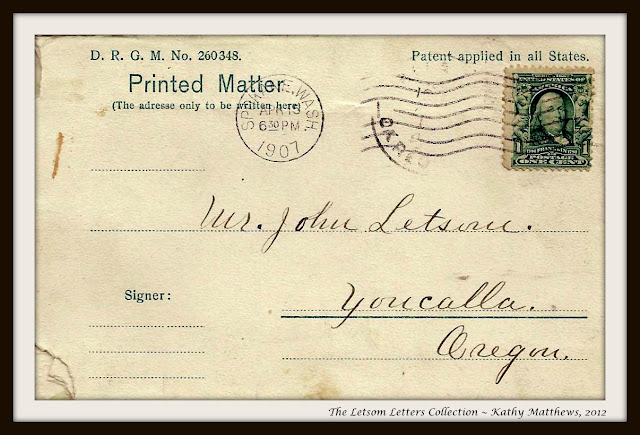 D. R. G. M. No. 260348.
Patent applied in all States.
Printed Matter
(The adresse only to be written here)
SPOKANE, WASH.
APR 13
6 30 PM
1907
UNITED STATES OF AMERICA
1 FRANKLIN 1
POSTAGE
ONE CENT
Mr. John Letsom.
Signer:
Youcalla.
Oregon.
The Letsom Letters Collection ~ Kathy Matthews, 2012